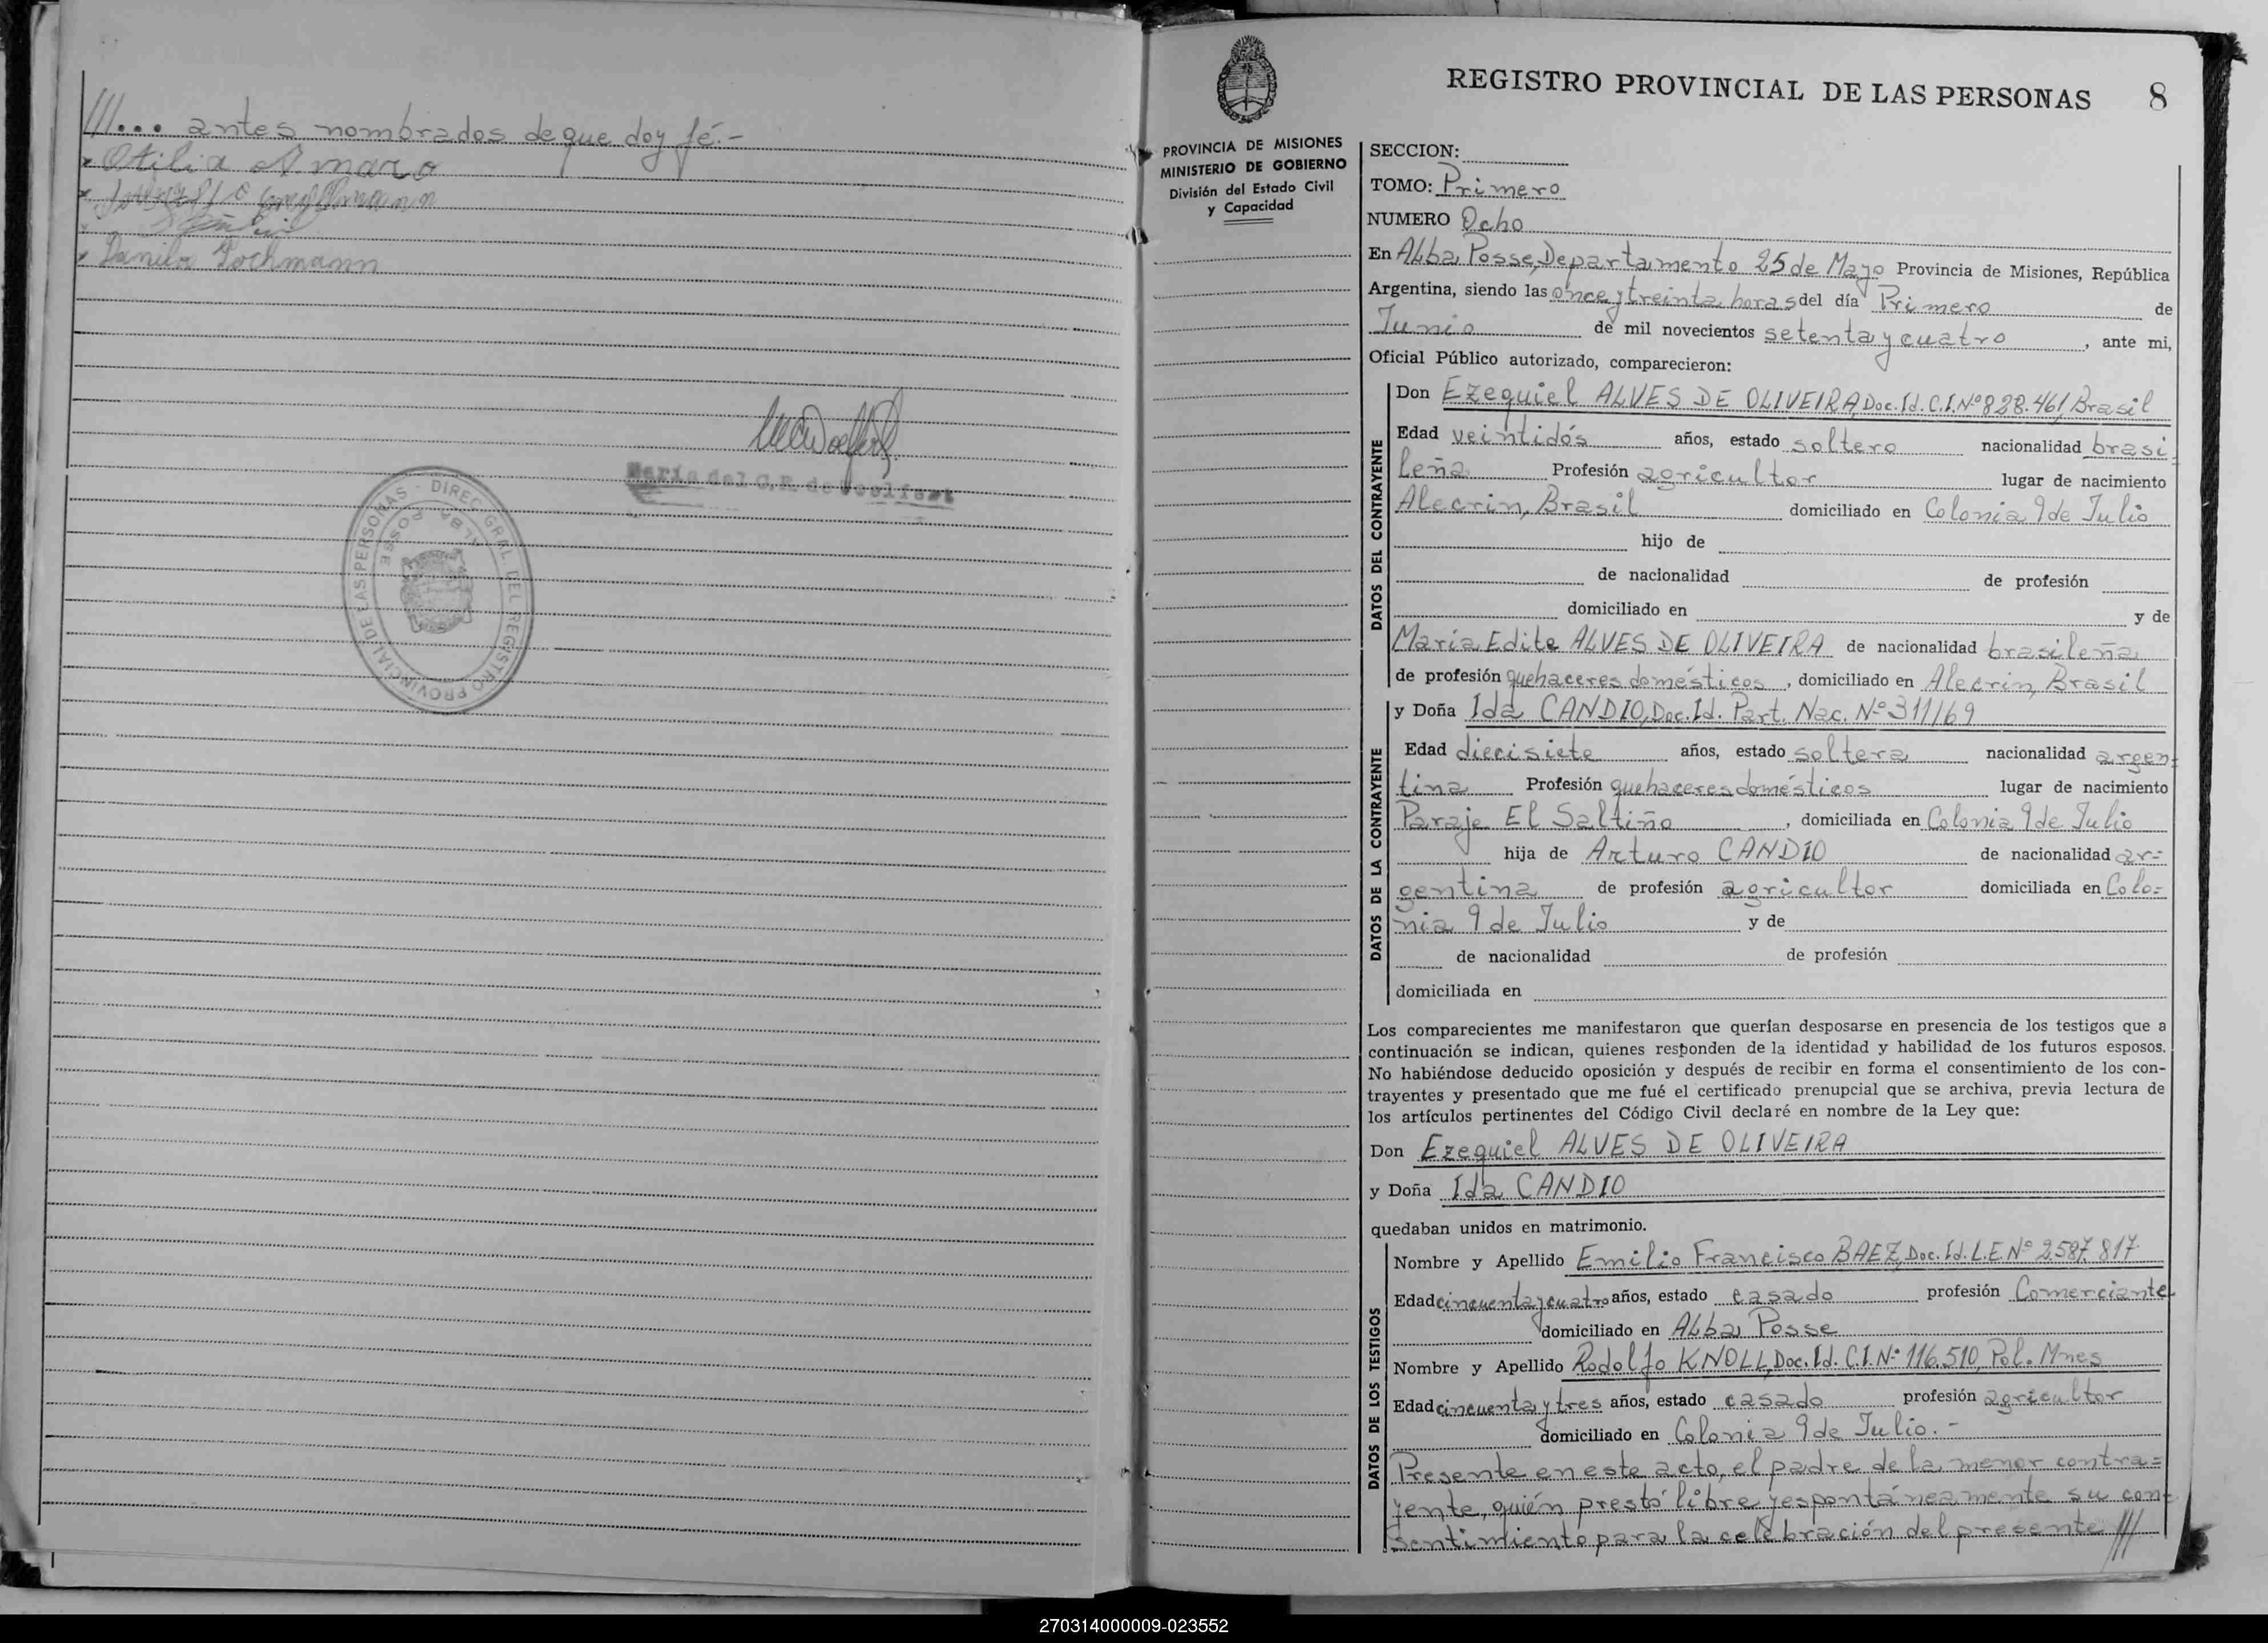 ///... antes nombrados de que doy fé.-
Otilia Amaro
Danilo Pochmann
María del C. R. de Woelfert
DIREC. GRAL. DEL REGISTRO PROVINCIAL DE LAS PERSONAS -
ALBA POSSE
PROVINCIA DE MISIONES
MINISTERIO DE GOBIERNO
División del Estado Civil
y Capacidad
REGISTRO PROVINCIAL DE LAS PERSONAS 8
SECCION:
TOMO: Primero
NUMERO Ocho
En Alba Posse, Departamento 25 de Mayo Provincia de Misiones, República
Argentina, siendo las once y treinta horas del día Primero de
Junio de mil novecientos setenta y cuatro, ante mi,
Oficial Público autorizado, comparecieron:
DATOS DEL CONTRAYENTE
Don Ezequiel ALVES DE OLIVEIRA, Doc. Id. C.I. Nº 828.461, Brasil
Edad veintidós años, estado soltero nacionalidad brasi-
leña Profesión agricultor lugar de nacimiento
Alecrin, Brasil domiciliado en Colonia 9 de Julio
hijo de
de nacionalidad de profesión
domiciliado en y de
María Edite ALVES DE OLIVEIRA de nacionalidad brasileña
de profesión quehaceres domésticos, domiciliado en Alecrin, Brasil
DATOS DE LA CONTRAYENTE
y Doña Ida CANDIO, Doc. Id. Part. Nac. Nº 311/69
Edad diecisiete años, estado soltera nacionalidad argen=
tina Profesión quehaceres domésticos lugar de nacimiento
Paraje El Saltiño, domiciliada en Colonia 9 de Julio
hija de Arturo CANDIO de nacionalidad ar=
gentina de profesión agricultor domiciliada en Colo=
nia 9 de Julio y de
de nacionalidad de profesión
domiciliada en
Los comparecientes me manifestaron que querían desposarse en presencia de los testigos que a
continuación se indican, quienes responden de la identidad y habilidad de los futuros esposos.
No habiéndose deducido oposición y después de recibir en forma el consentimiento de los con-
trayentes y presentado que me fué el certificado prenupcial que se archiva, previa lectura de
los artículos pertinentes del Código Civil declaré en nombre de la Ley que:
Don Ezequiel ALVES DE OLIVEIRA
y Doña Ida CANDIO
quedaban unidos en matrimonio.
DATOS DE LOS TESTIGOS
Nombre y Apellido Emilio Francisco BAEZ, Doc. Id. L.E. Nº 2.587.817
Edad cincuenta y cuatro años, estado casado profesión Comerciante
domiciliado en Alba Posse
Nombre y Apellido Rodolfo KNOLL, Doc. Id. C.I. Nº 116.510, Pol. Mnes
Edad cincuenta y tres años, estado casado profesión agricultor
domiciliado en Colonia 9 de Julio.-
Presente en este acto, el padre de la menor contra=
yente, quién prestó libre y espontáneamente su con=
sentimiento para la celebración del presente ///
270314000009-023552